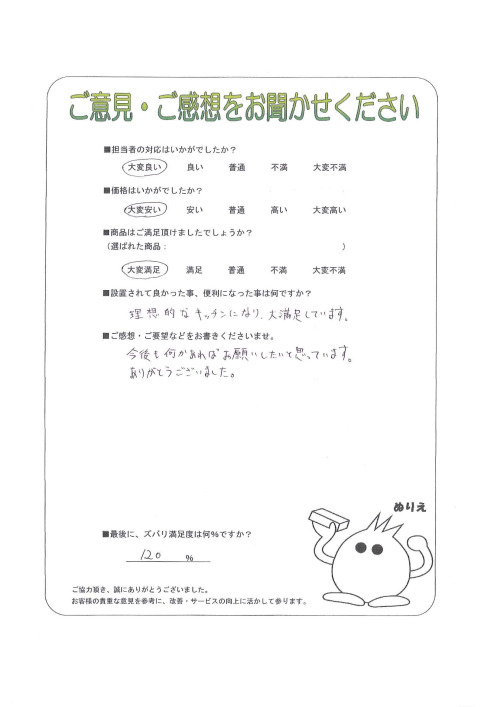 ご意見・ご感想をお聞かせください
■担当者の対応はいかがでしたか？
大変良い 良い 普通 不満 大変不満
■価格はいかがでしたか？
大変安い 安い 普通 高い 大変高い
■商品はご満足頂けましたでしょうか？
（選ばれた商品： ）
大変満足 満足 普通 不満 大変不満
■設置されて良かった事、便利になった事は何ですか？
理想的なキッチンになり、大満足しています。
■ご感想・ご要望などをお書きくださいませ。
今後も何かあればお願いしたいと思っています。
ありがとうございました。
ぬりえ
■最後に、ズバリ満足度は何％ですか？
120 ％
ご協力頂き、誠にありがとうございました。
お客様の貴重な意見を参考に、改善・サービスの向上に活かして参ります。